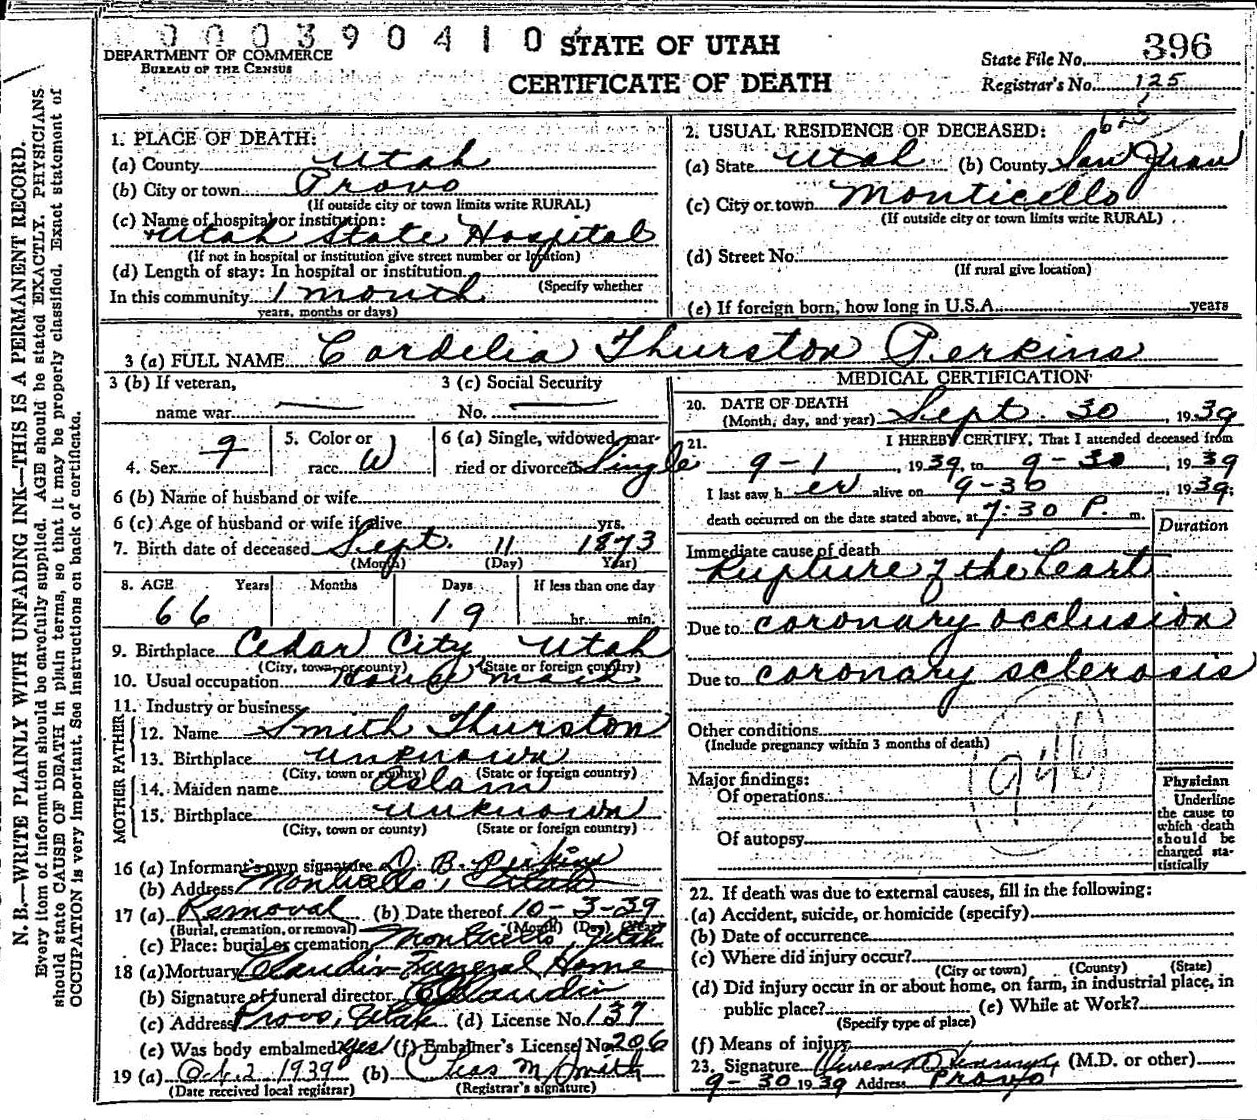 000390410
DEPARTMENT OF COMMERCE
BUREAU OF THE CENSUS
STATE OF UTAH
CERTIFICATE OF DEATH
State File No. 396
Registrar's No. 125
N. B.—WRITE PLAINLY WITH UNFADING INK—THIS IS A PERMANENT RECORD.
Every item of information should be carefully supplied. AGE should be stated EXACTLY. PHYSICIANS
should state CAUSE OF DEATH in plain terms, so that it may be properly classified. Exact statement of
OCCUPATION is very important. See instructions on back of certificate.
1. PLACE OF DEATH:
(a) County Utah
(b) City or town Provo
(If outside city or town limits write RURAL)
(c) Name of hospital or institution:
Utah State Hospital
(If not in hospital or institution give street number or location)
(d) Length of stay: In hospital or institution
(Specify whether
In this community 1 month
years, months or days)
2. USUAL RESIDENCE OF DECEASED:
(a) State Utah (b) County San Juan
(c) City or town Monticello
(If outside city or town limits write RURAL)
(d) Street No.
(If rural give location)
(e) If foreign born, how long in U.S.A. years
3 (a) FULL NAME Cordelia Thurston Perkins
3 (b) If veteran, 3 (c) Social Security
name war — No. —
4. Sex F 5. Color or race W 6 (a) Single, widowed, married or divorced Single
6 (b) Name of husband or wife
6 (c) Age of husband or wife if alive yrs.
7. Birth date of deceased Sept. 11 1873
(Month) (Day) Year)
8. AGE Years Months Days If less than one day
66 19 hr. min.
9. Birthplace Cedar City Utah
(City, town or county) (State or foreign country)
10. Usual occupation House maid
11. Industry or business
FATHER
12. Name Smith Thurston
13. Birthplace unknown
(City, town or county) (State or foreign country)
MOTHER
14. Maiden name Aslam
15. Birthplace unknown
(City, town or county) (State or foreign country)
16 (a) Informant's own signature D. B. Perkins
(b) Address Monticello, Utah
17 (a) Removal (b) Date thereof 10-3-39
(Burial, cremation, or removal) (Month) (Day) (Year)
(c) Place: burial or cremation Monticello, Utah
18 (a) Mortuary Claudin Funeral Home
(b) Signature of funeral director Claudin
(c) Address Provo, Utah (d) License No. 137
(e) Was body embalmed? yes (f) Embalmer's License No. 206
19 (a) Oct. 2 1939 (b) Chas M Smith
(Date received local registrar) (Registrar's signature)
MEDICAL CERTIFICATION
20. DATE OF DEATH
(Month, day, and year) Sept. 30, 1939
21. I HEREBY CERTIFY, That I attended deceased from
9-1, 1939, to 9-30, 1939
I last saw her alive on 9-30, 1939;
death occurred on the date stated above, at 7:30 P. m.
Duration
Immediate cause of death
Rupture of the heart
Due to coronary occlusion
Due to coronary sclerosis
Other conditions
(Include pregnancy within 3 months of death)
94b
Major findings:
Of operations
Of autopsy
Physician
Underline
the cause to
which death
should be
charged sta-
tistically
22. If death was due to external causes, fill in the following:
(a) Accident, suicide, or homicide (specify)
(b) Date of occurrence
(c) Where did injury occur?
(City or town) (County) (State)
(d) Did injury occur in or about home, on farm, in industrial place, in
public place? (e) While at Work?
(Specify type of place)
(f) Means of injury
23. Signature Owen (M.D. or other)
9-30 1939 Address Provo